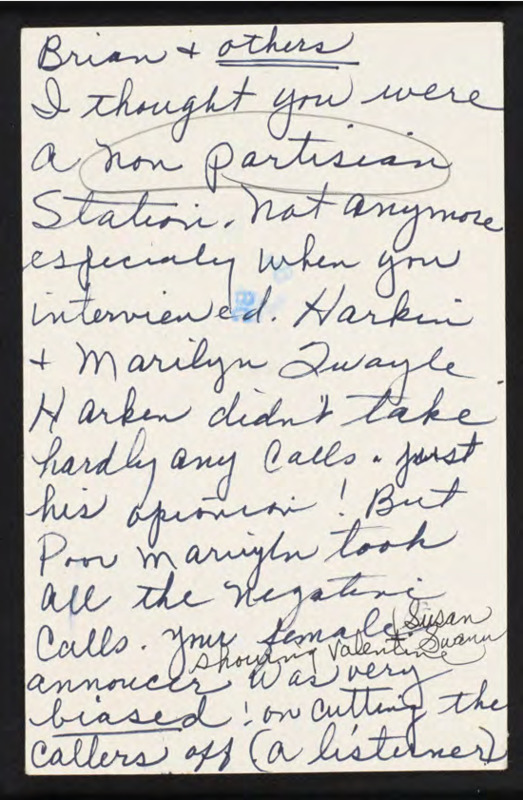 Brian + others
I thought you were
a non partisian
Station. Not anymore
especialy when you
interviewed. Harkin
+ Marilyn Quayle
Harken didn't take
hardly any calls. just
his opionion! But
Poor Marilyn took
all the negative
calls. your female Susan
Swann
showing Valentine
annoucer was very
biased! on cutting the
callers off (a listerner)